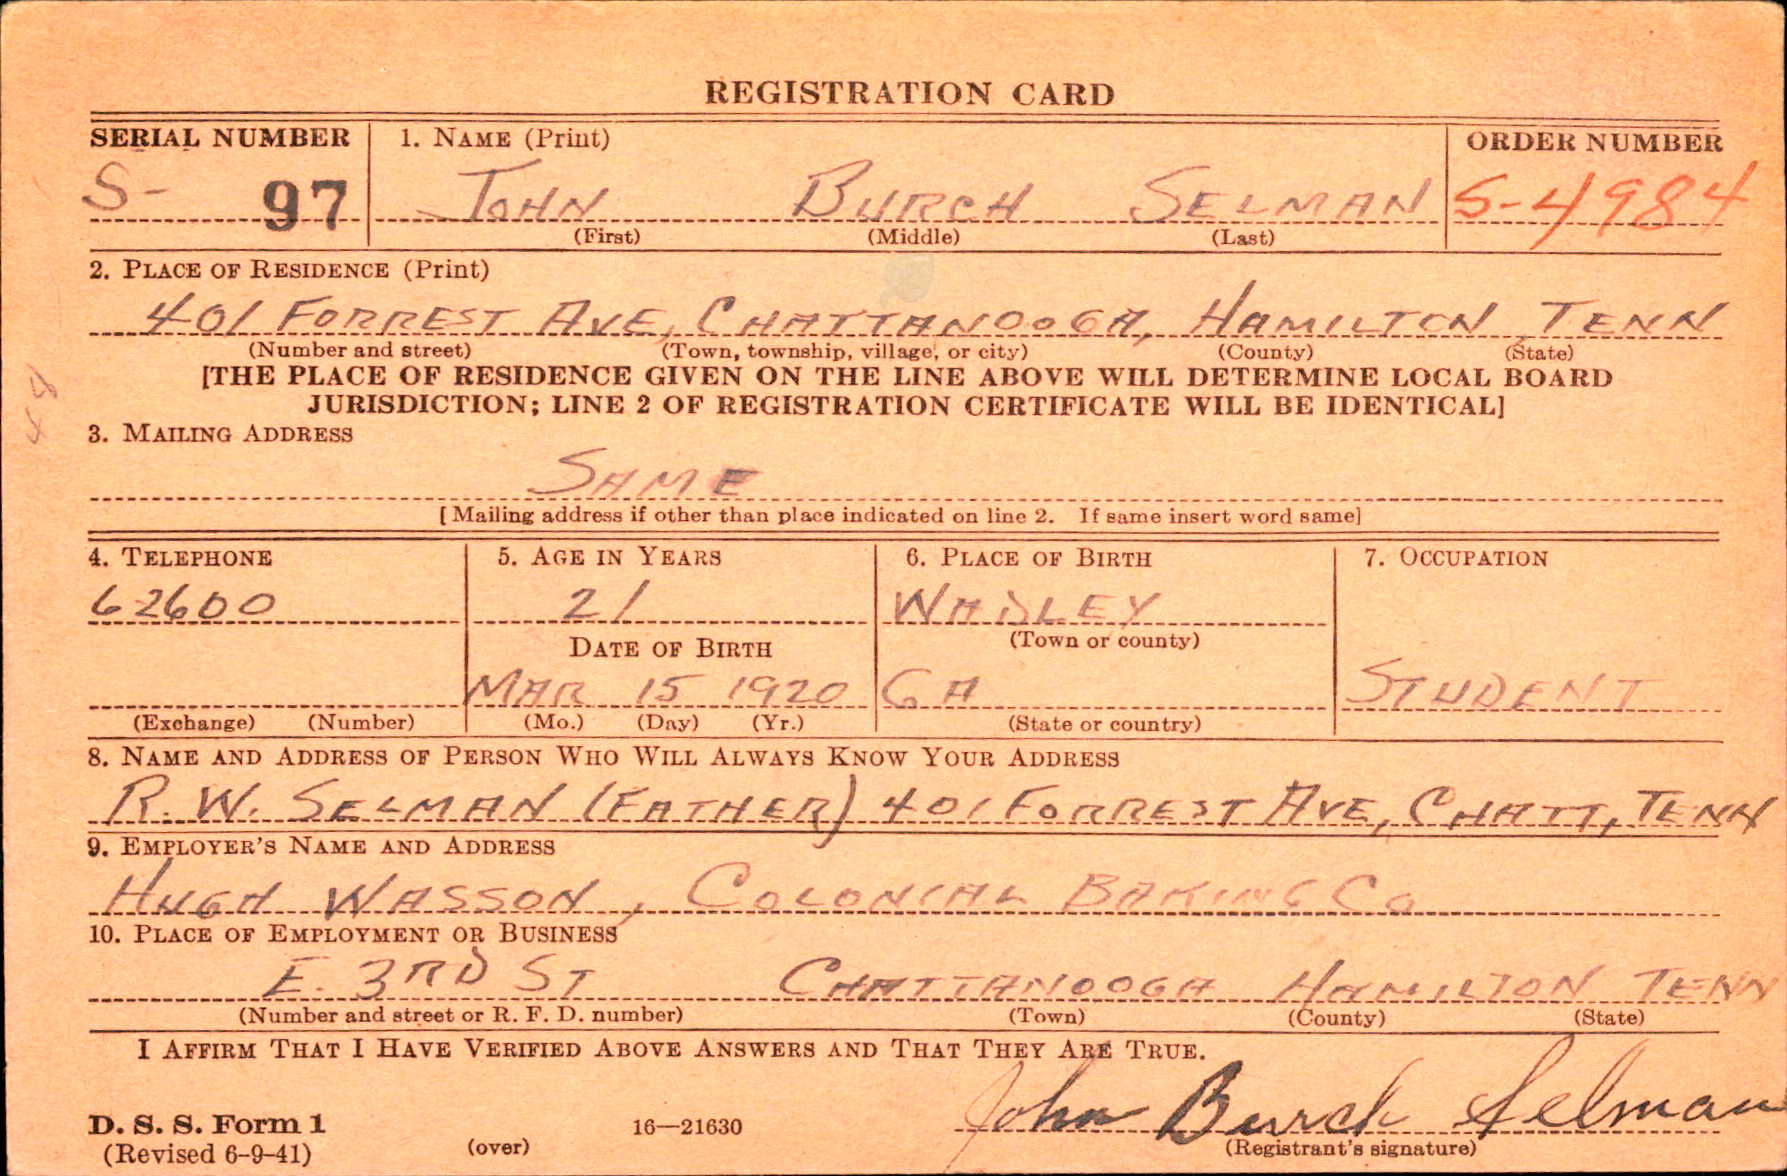 REGISTRATION CARD
SERIAL NUMBER 1. NAME (Print) ORDER NUMBER
S- 97 JOHN BURCH SELMAN S-4984
(First) (Middle) (Last)
2. PLACE OF RESIDENCE (Print)
401 FORREST AVE, CHATTANOOGA, HAMILTON, TENN
(Number and street) (Town, township, village, or city) (County) (State)
[THE PLACE OF RESIDENCE GIVEN ON THE LINE ABOVE WILL DETERMINE LOCAL BOARD
JURISDICTION; LINE 2 OF REGISTRATION CERTIFICATE WILL BE IDENTICAL]
48
3. MAILING ADDRESS
SAME
[Mailing address if other than place indicated on line 2. If same insert word same]
4. TELEPHONE 5. AGE IN YEARS 6. PLACE OF BIRTH 7. OCCUPATION
62600 21 WADLEY
DATE OF BIRTH (Town or county)
MAR 15 1920 GA STUDENT
(Exchange) (Number) (Mo.) (Day) (Yr.) (State or country)
8. NAME AND ADDRESS OF PERSON WHO WILL ALWAYS KNOW YOUR ADDRESS
R. W. SELMAN (FATHER) 401 FORREST AVE, CHATT, TENN
9. EMPLOYER'S NAME AND ADDRESS
HUGH WASSON, COLONIAL BAKING CO
10. PLACE OF EMPLOYMENT OR BUSINESS
E. 3RD ST CHATTANOOGA HAMILTON TENN
(Number and street or R. F. D. number) (Town) (County) (State)
I AFFIRM THAT I HAVE VERIFIED ABOVE ANSWERS AND THAT THEY ARE TRUE.
John Burch Selman
D. S. S. Form 1 16—21630
(Revised 6-9-41) (over) (Registrant's signature)